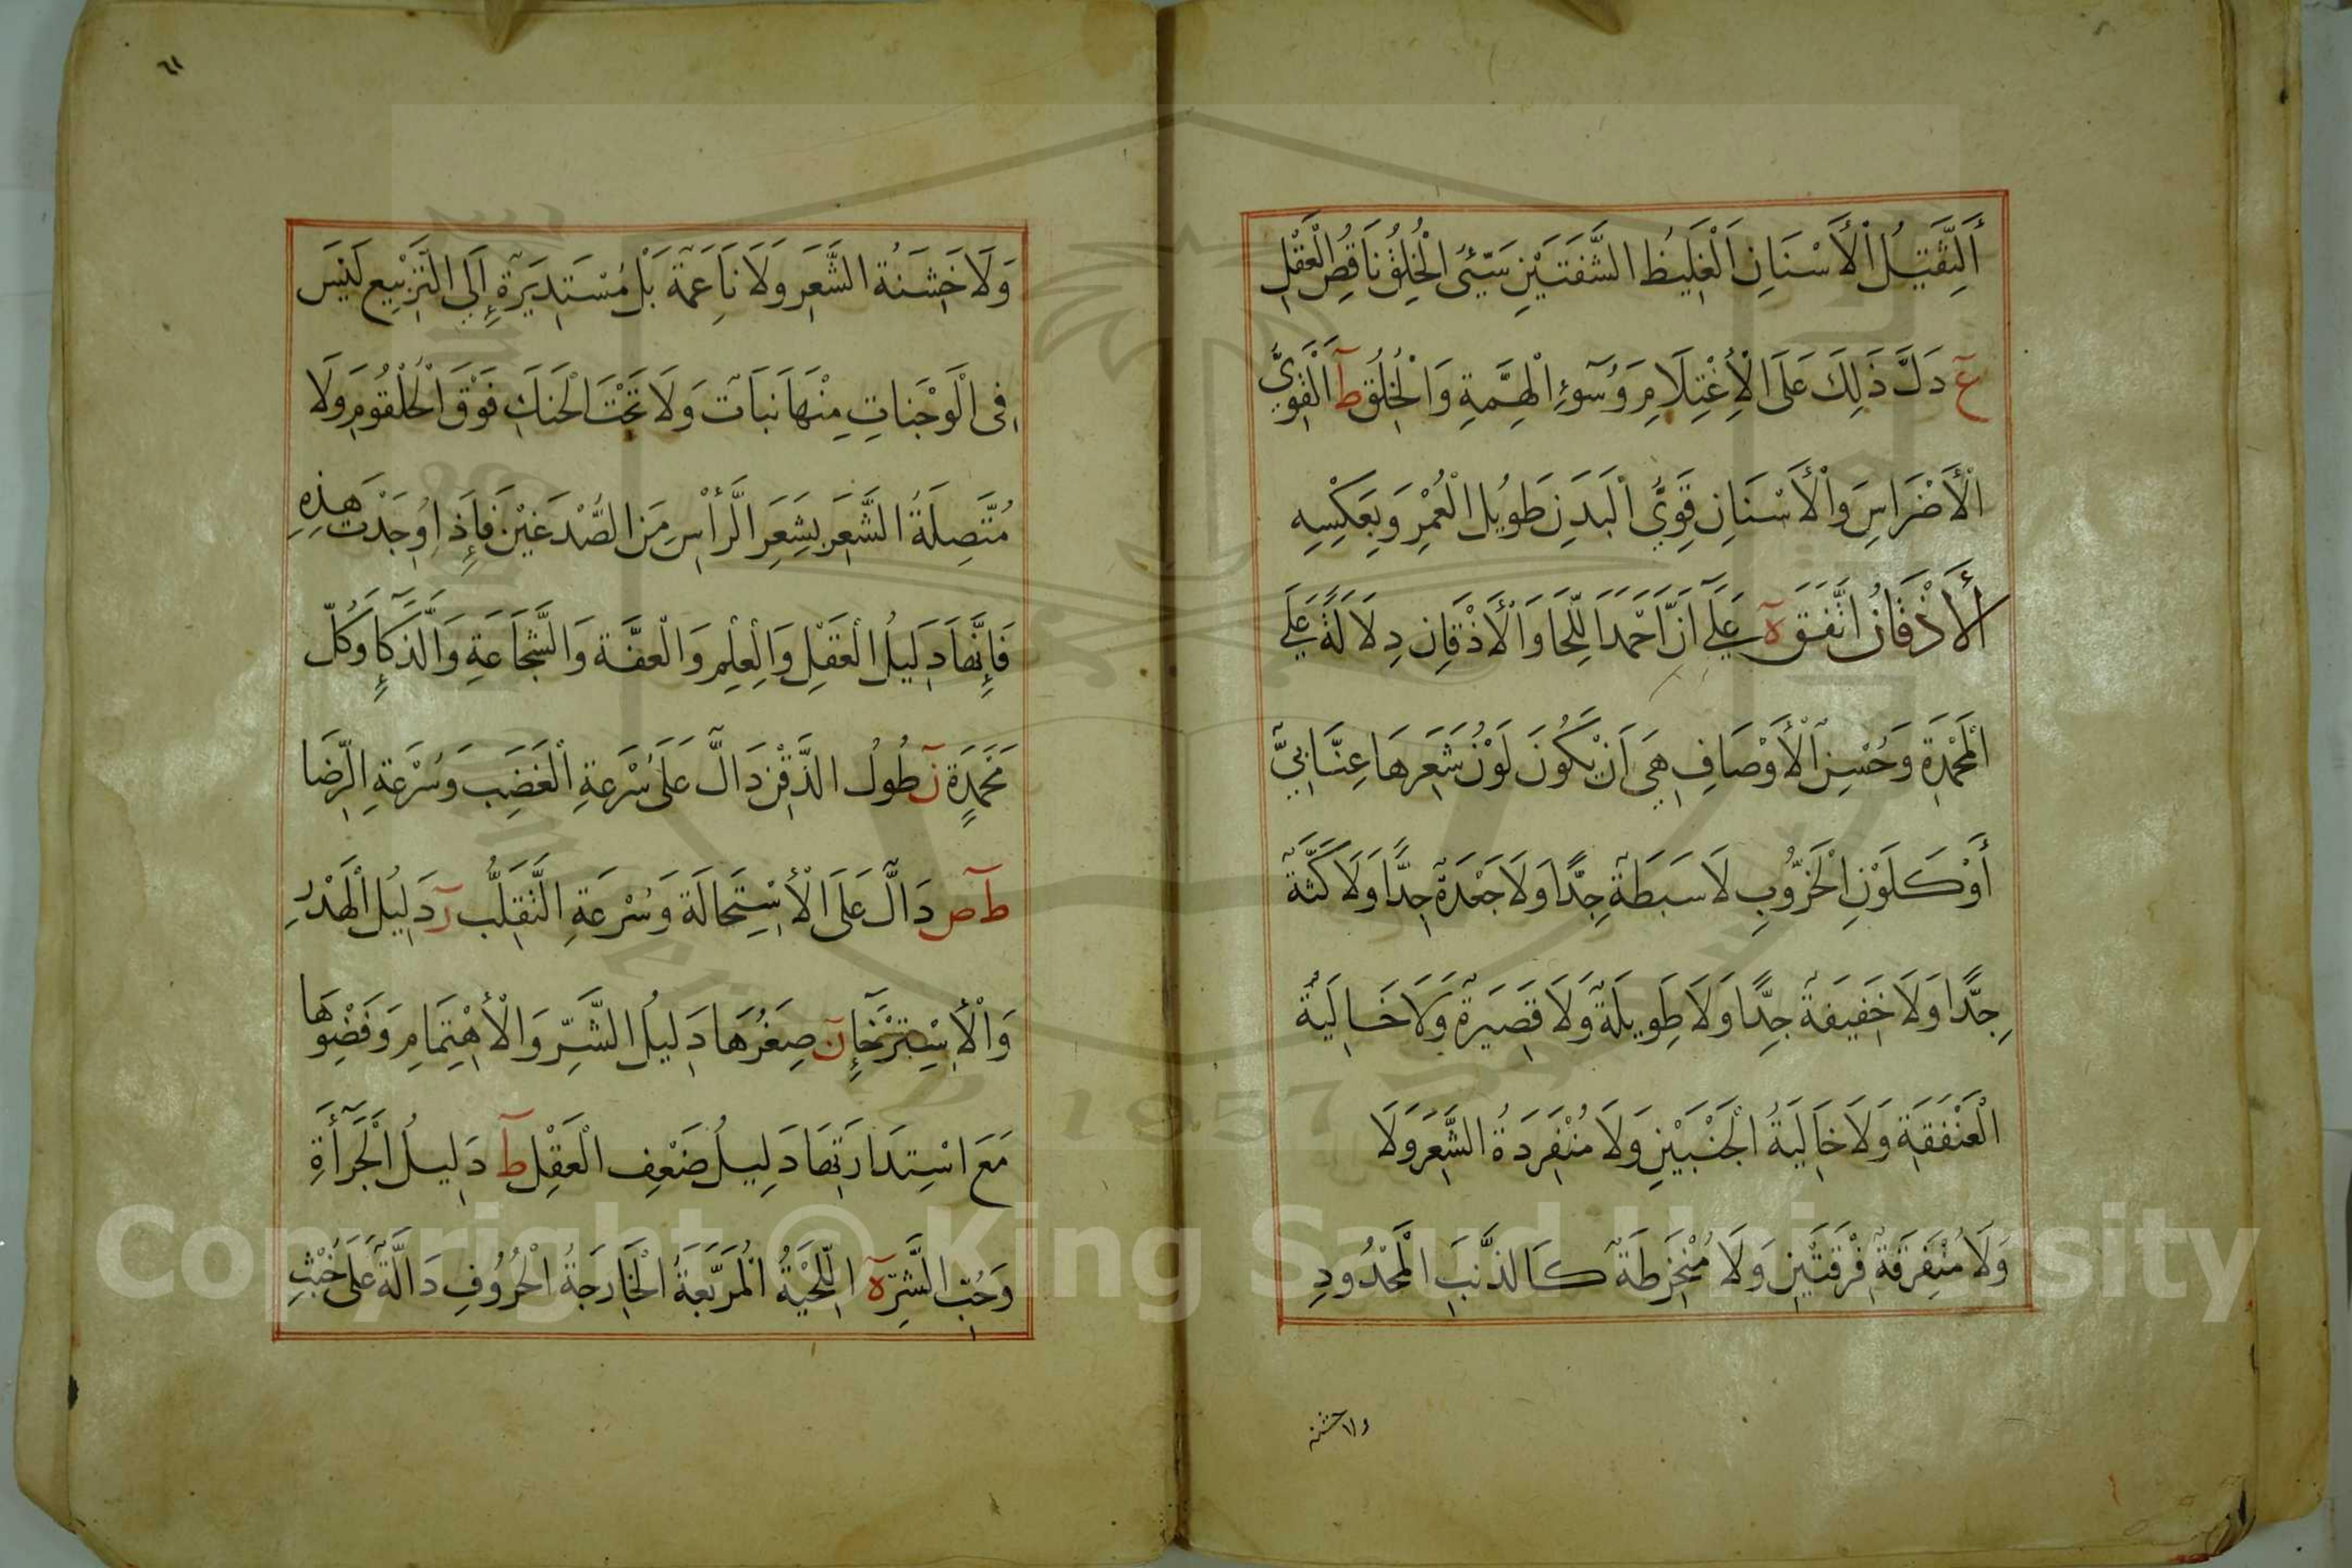 أَلثَّقِيلُ الْأَسْنَانِ الْغَلِيظُ الشَّفَتَيْنِ سَيِّئُ الْخُلُقِ نَاقِصُ الْعَقْلِ
عَ دَلَّ ذَلِكَ عَلَى الْاِغْتِلَامِ وَسُوٓءِ الْهِمَّةِ وَالْخُلُقِ طَ اَلْقَوِيُّ
الْأَضْرَاسِ وَالْأَسْنَانِ قَوِيُّ الْبَدَنِ طَوِيلُ الْعُمْرِ وَبِعَكْسِهِ
أَلْأَذْقَانُ اتَّفَقَ ةَ عَلَى اَنَّ اَحْمَدَ اللِّحَا وَالْأَذْقَانِ دِلَالَةً عَلَى
الْمَحْمَدَةِ وَحُسْنِ الْأَوْصَافِ هِيَ اَنْ يَكُونَ لَوْنُ شَعَرِهَا عِنَّابِيٌّ
أَوْ كَلَوْنِ الْخَرُّوبِ لَا سَبَطَةٌ جِدًّا وَلَا جَعْدَةٌ جِدًّا وَلَا كَثَّةٌ
جِدًّا وَلَا خَفِيفَةٌ جِدًّا وَلَا طَوِيلَةٌ وَلَا قَصِيرَةٌ وَلَا خَالِيَةُ
الْعَنْفَقَةِ وَلَا خَالِيَةُ الْجَنْبَيْنِ وَلَا مُنْفَرِدَةُ الشَّعَرِ وَلَا
وَلَا مُتَفَرِقَةٌ فِرْقَتَيْنِ وَلَا مُنْخَرِطَةٌ كَالذَّنَبِ الْمَحْدُودِ
ولا خشنه
٦١
وَلَا خَشِنَةُ الشَّعَرِ وَلَا نَاعِمَةٌ بَلْ مُسْتَدِيرَةٌ إِلَى التَّرْبِيعِ لَيْسَ
فِى الْوَجْنَاتِ مِنْهَا نَبَاتٌ وَلَا تَحْتَ الْحَنَكِ فَوْقَ الْحُلْقُومِ وَلَا
مُتَّصِلَةُ الشَّعَرِ بِشَعَرِ الرَّأْسِ مِنَ الصُّدْغَيْنِ فَإِذَا وُجِدَتْ هَذِهِ
فَإِنَّهَا دَلِيلُ الْعَقْلِ وَالْعِلْمِ وَالْعِفَّةِ وَالشَّجَاعَةِ وَالذَّكَآءِ وَكُلِّ
مَحْمَدَةٍ نَ طُولُ الذَّقْنِ دَالٌّ عَلَى سُرْعَةِ الْغَضَبِ وَسُرْعَةِ الرِّضَا
طَ صَ دَالٌّ عَلَى الْاِسْتِحَالَةِ وَسُرْعَةِ التَّقَلُّبِ رَ دَلِيلُ الْهَدْرِ
وَالْاِسْتِرْخَآءِ نَ صِغَرُهَا دَلِيلُ الشَّرِّ وَالْاِهْتِمَامِ وَفَضْوُهَا
مَعَ اسْتِدَارَتِهَا دَلِيلُ ضَعْفِ الْعَقْلِ طَ دَلِيلُ الْجُرْأَةِ
وَحُبِّ الشَّرِّ ةَ اللِّحْيَةُ الْمُرَبَّعَةُ الْخَارِجَةُ الْحُرُوفِ دَالَّةٌ عَلَى خُبْثِ
Copyright © King Saud University
1957